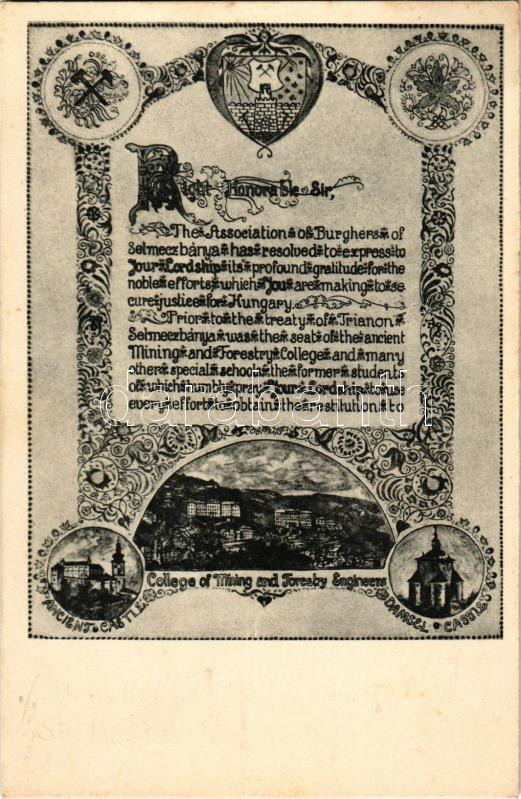 Right Honorable Sir,
The Association of Burghers of
Selmeczbánya has resolved to express to
Your Lordship its profound gratitude for the
noble efforts which You are making to se
cure justice for Hungary.
Prior to the treaty of Trianon
Selmeczbánya was the seat of the ancient
Mining and Forestry College and many
other special schools the former students
of which humbly pray Your Lordship to use
every effort to obtain the restitution to
darabanth
College of Mining and Forestry Engineers
ANCIENT CASTLE
DAMSEL CASTLE